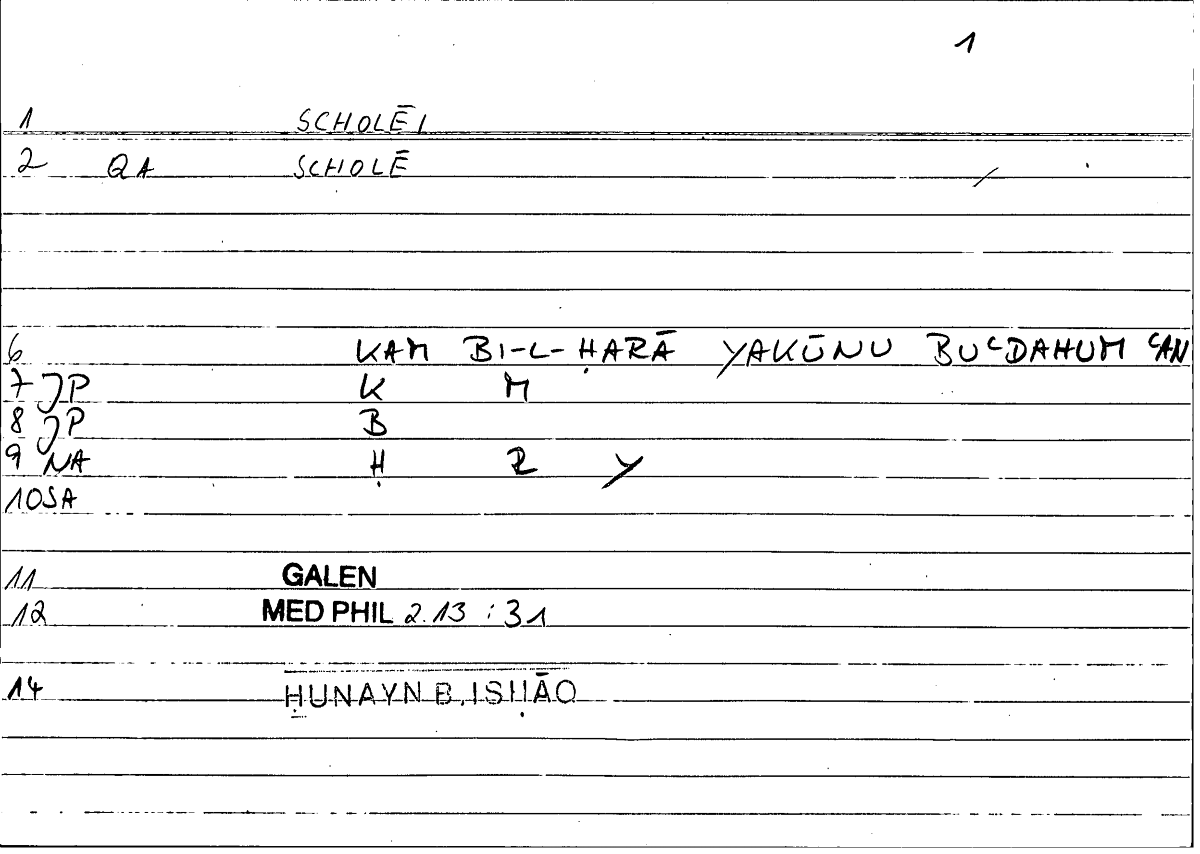 1
1 SCHOLĒI
2 QA SCHOLĒ /
6 KAM BI-L-ḤARĀ YAKŪNU BUʿDAHUM ʿAN
7 JP K M
8 JP B
9 NA Ḥ R Y
10 SA
11 GALEN
12 MED PHIL 2.13 : 31
14 ḤUNAYN B. ISḤĀQ